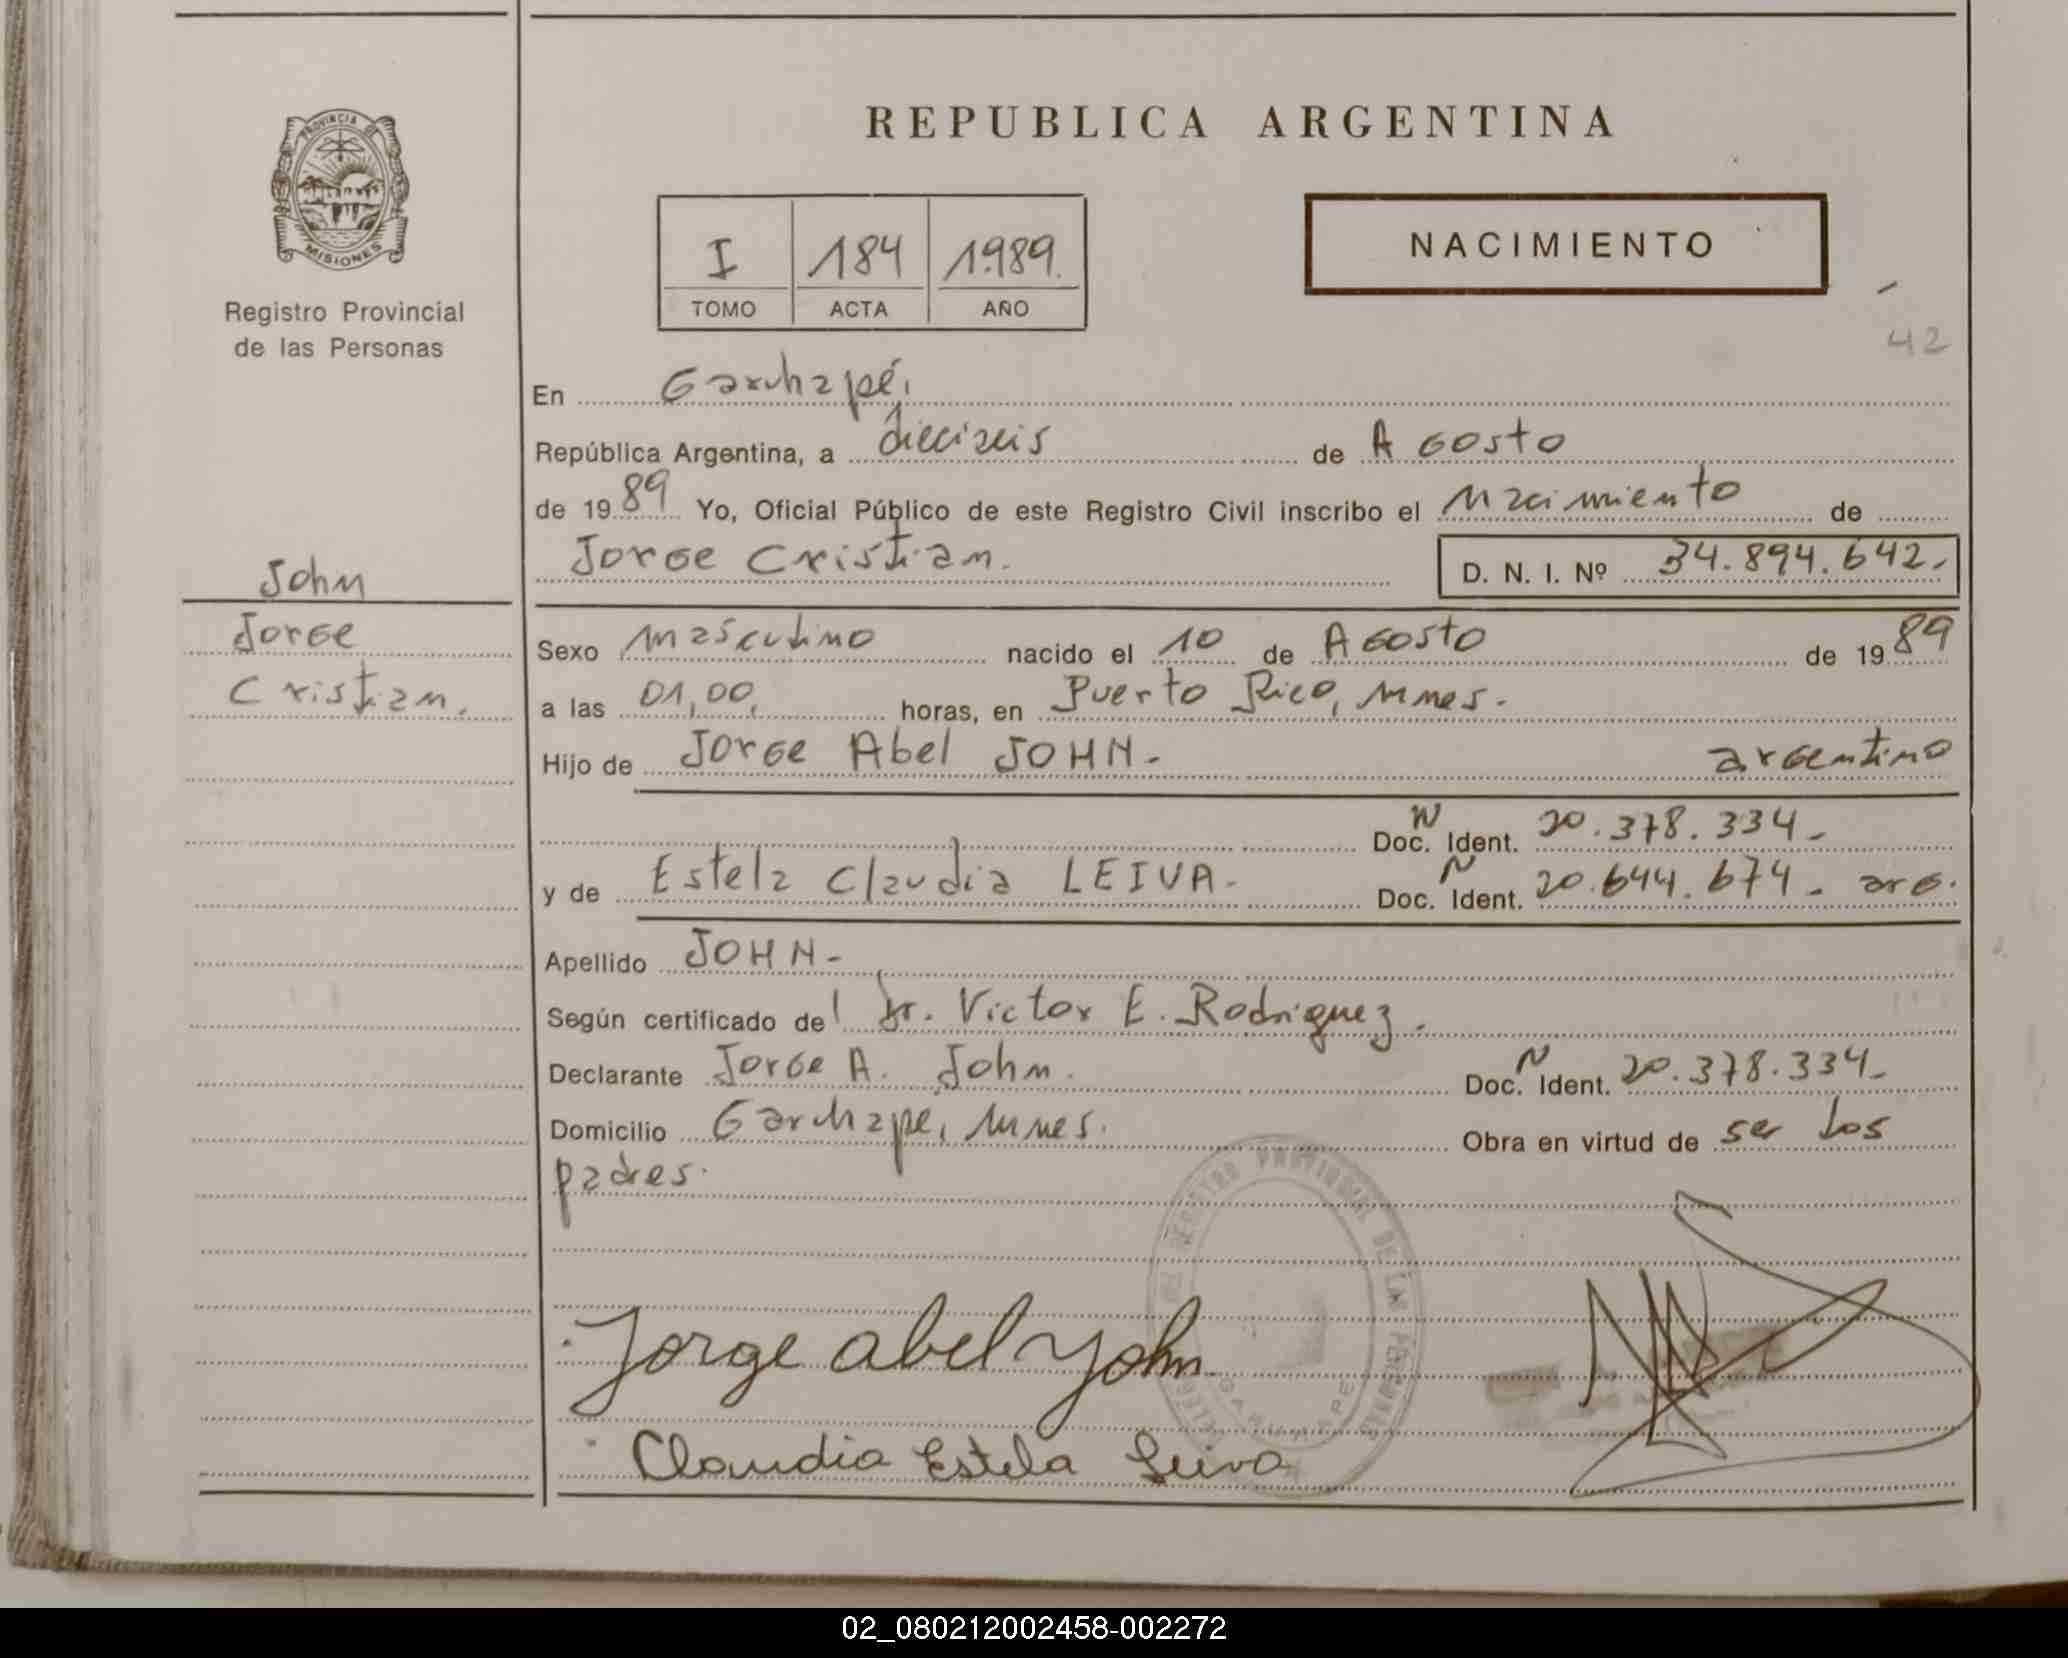 REPUBLICA ARGENTINA
PROVINCIA DE
MISIONES
Registro Provincial
de las Personas
I 184 1.989.
TOMO ACTA AÑO
NACIMIENTO
42
En Garuhapé,
República Argentina, a dieciseis de Agosto
de 1989 Yo, Oficial Público de este Registro Civil inscribo el Nacimiento de
Jorge Cristian. D. N. I. Nº 34.894.642.-
John
Jorge
Cristian.
Sexo masculino nacido el 10 de Agosto de 1989
a las 01,00, horas, en Puerto Rico, Mnes.
Hijo de Jorge Abel JOHN.- argentino
Doc. N Ident. 20.378.334-
y de Estela Claudia LEIVA.- Doc. N Ident. 20.644.674- arg.
Apellido JOHN-
Según certificado del Dr. Victor E. Rodriguez.
Declarante Jorge A. John. Doc. N Ident. 20.378.334-
Domicilio Garuhapé, Mnes. Obra en virtud de ser los
padres.
REGISTRO PROVINCIAL DE LAS PERSONAS
GARUHAPE
Jorge abel John
Claudia Estela Leiva
02_080212002458-002272